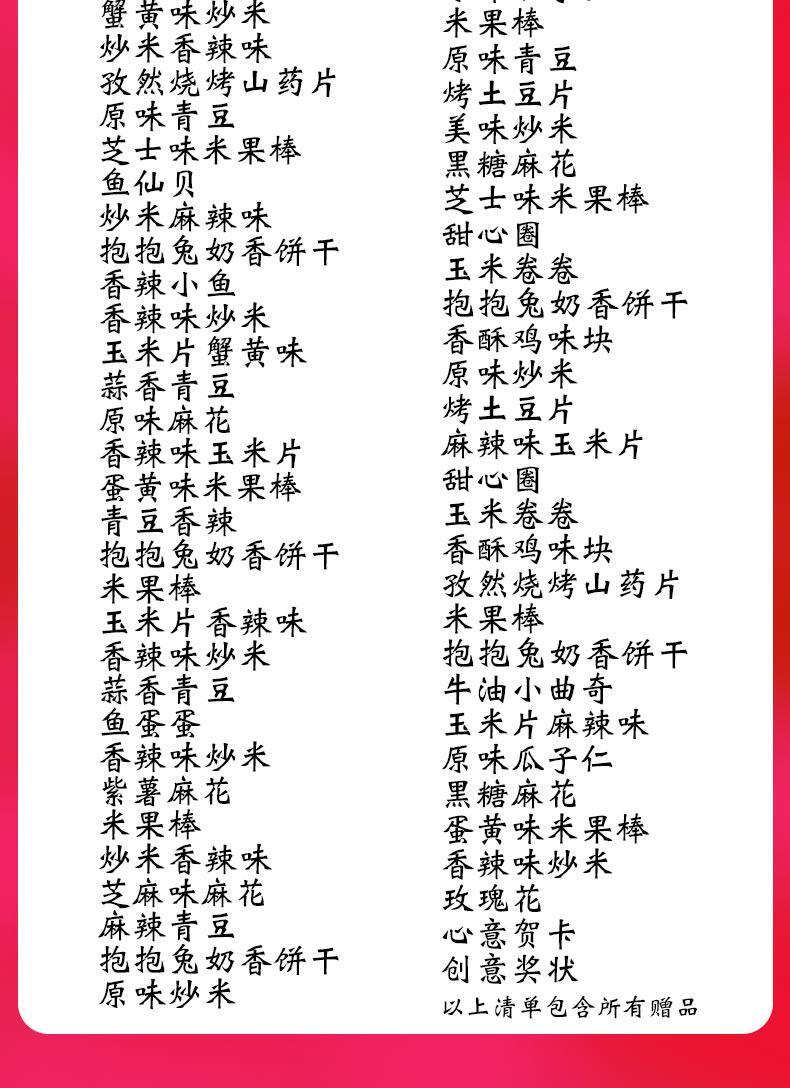 蟹黄味炒米
炒米香辣味
孜然烧烤山药片
原味青豆
芝士味米果棒
鱼仙贝
炒米麻辣味
抱抱兔奶香饼干
香辣小鱼
香辣味炒米
玉米片蟹黄味
蒜香青豆
原味麻花
香辣味玉米片
蛋黄味米果棒
青豆香辣
抱抱兔奶香饼干
米果棒
玉米片香辣味
香辣味炒米
蒜香青豆
鱼蛋蛋
香辣味炒米
紫薯麻花
米果棒
炒米香辣味
芝麻味麻花
麻辣青豆
抱抱兔奶香饼干
原味炒米
米果棒
原味青豆
烤土豆片
美味炒米
黑糖麻花
芝士味米果棒
甜心圈
玉米卷卷
抱抱兔奶香饼干
香酥鸡味块
原味炒米
烤土豆片
麻辣味玉米片
甜心圈
玉米卷卷
香酥鸡味块
孜然烧烤山药片
米果棒
抱抱兔奶香饼干
牛油小曲奇
玉米片麻辣味
原味瓜子仁
黑糖麻花
蛋黄味米果棒
香辣味炒米
玫瑰花
心意贺卡
创意奖状
以上清单包含所有赠品